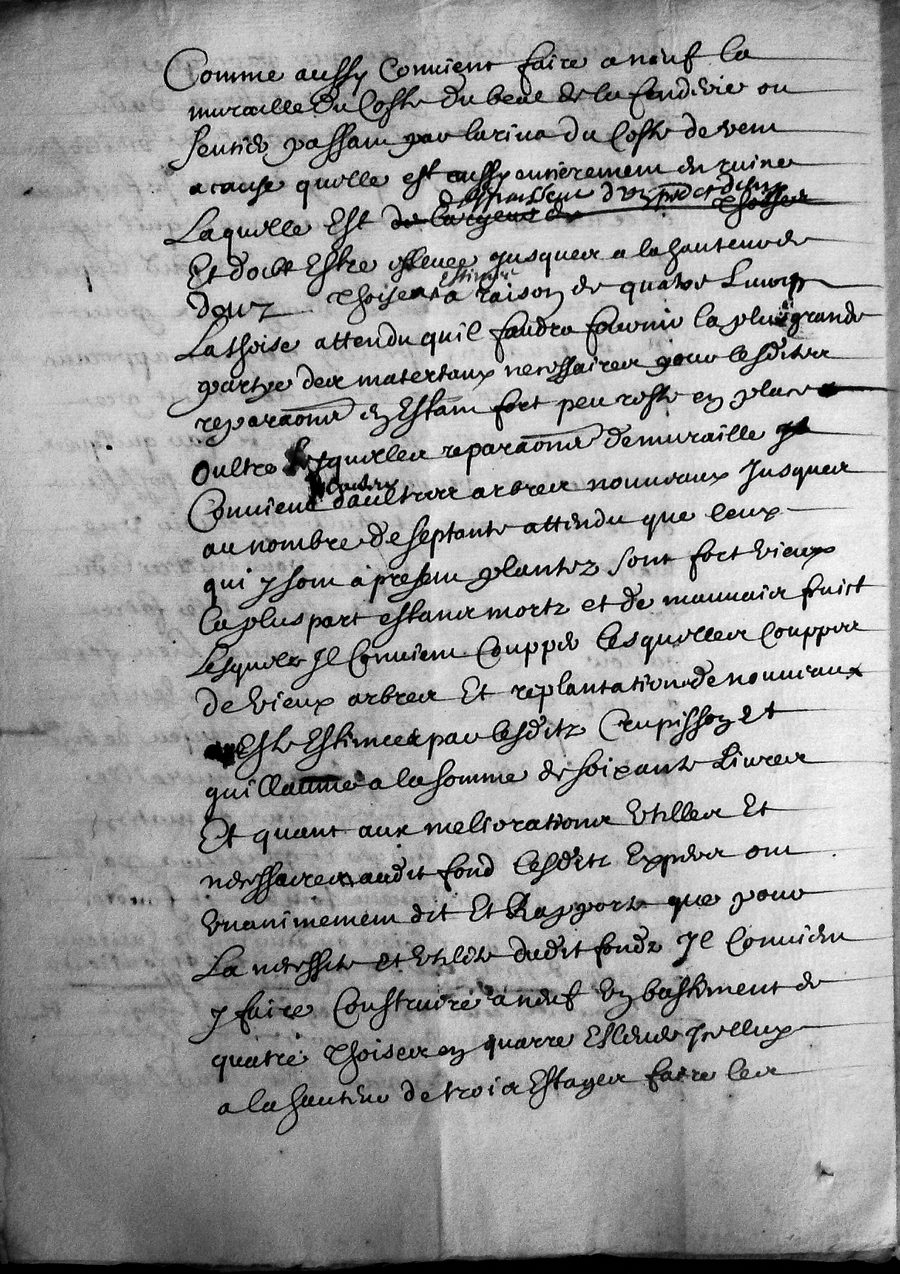 Comme aussy Convient faire a neuf la
muraille du Coste du beal de la fonderie ou
sentier passant par la rive du Coste de vent
a cause quelle est aussy entierement en ruine
despoisseur d'un pied et demy
Laquelle Est de largeur de thoises
Et doibt Estre esleuee jusques a la hauteur de
deux thoises estimée a raison de quatre Liures
La thoise attendu quil faudra fournir la plus grande
partye des materiaux necessaires pour lesdites
reparaons en Estant fort peu reste en place
oultre lesquelles reparaons de muraille jl
Convient daultres arbres nouueaux Jusques
au nombre de septante attendu que ceux
qui y sont a present plantez sont fort vieux
la pluspart estants mortz et de mauuais fruict
Lesquelz Jl Convient Coupper lesquelles Couppes
de vieux arbres Et replantation de nouueaux
Esté Estimées par lesditz Crupisson Et
guillaume a la somme de soixante Liures
Et quant aux meliorations Vtilles Et
necessaires audit fond lesditz Expers ont
Vnanimement dit Et Rapporté que pour
La necessite et vtilite dudit fondz Jl Convient
y faire Construire a neuf vn bastiment de
quatre thoises en quarre Esleué Jcelluy
a la hauteur de trois Estages faire les